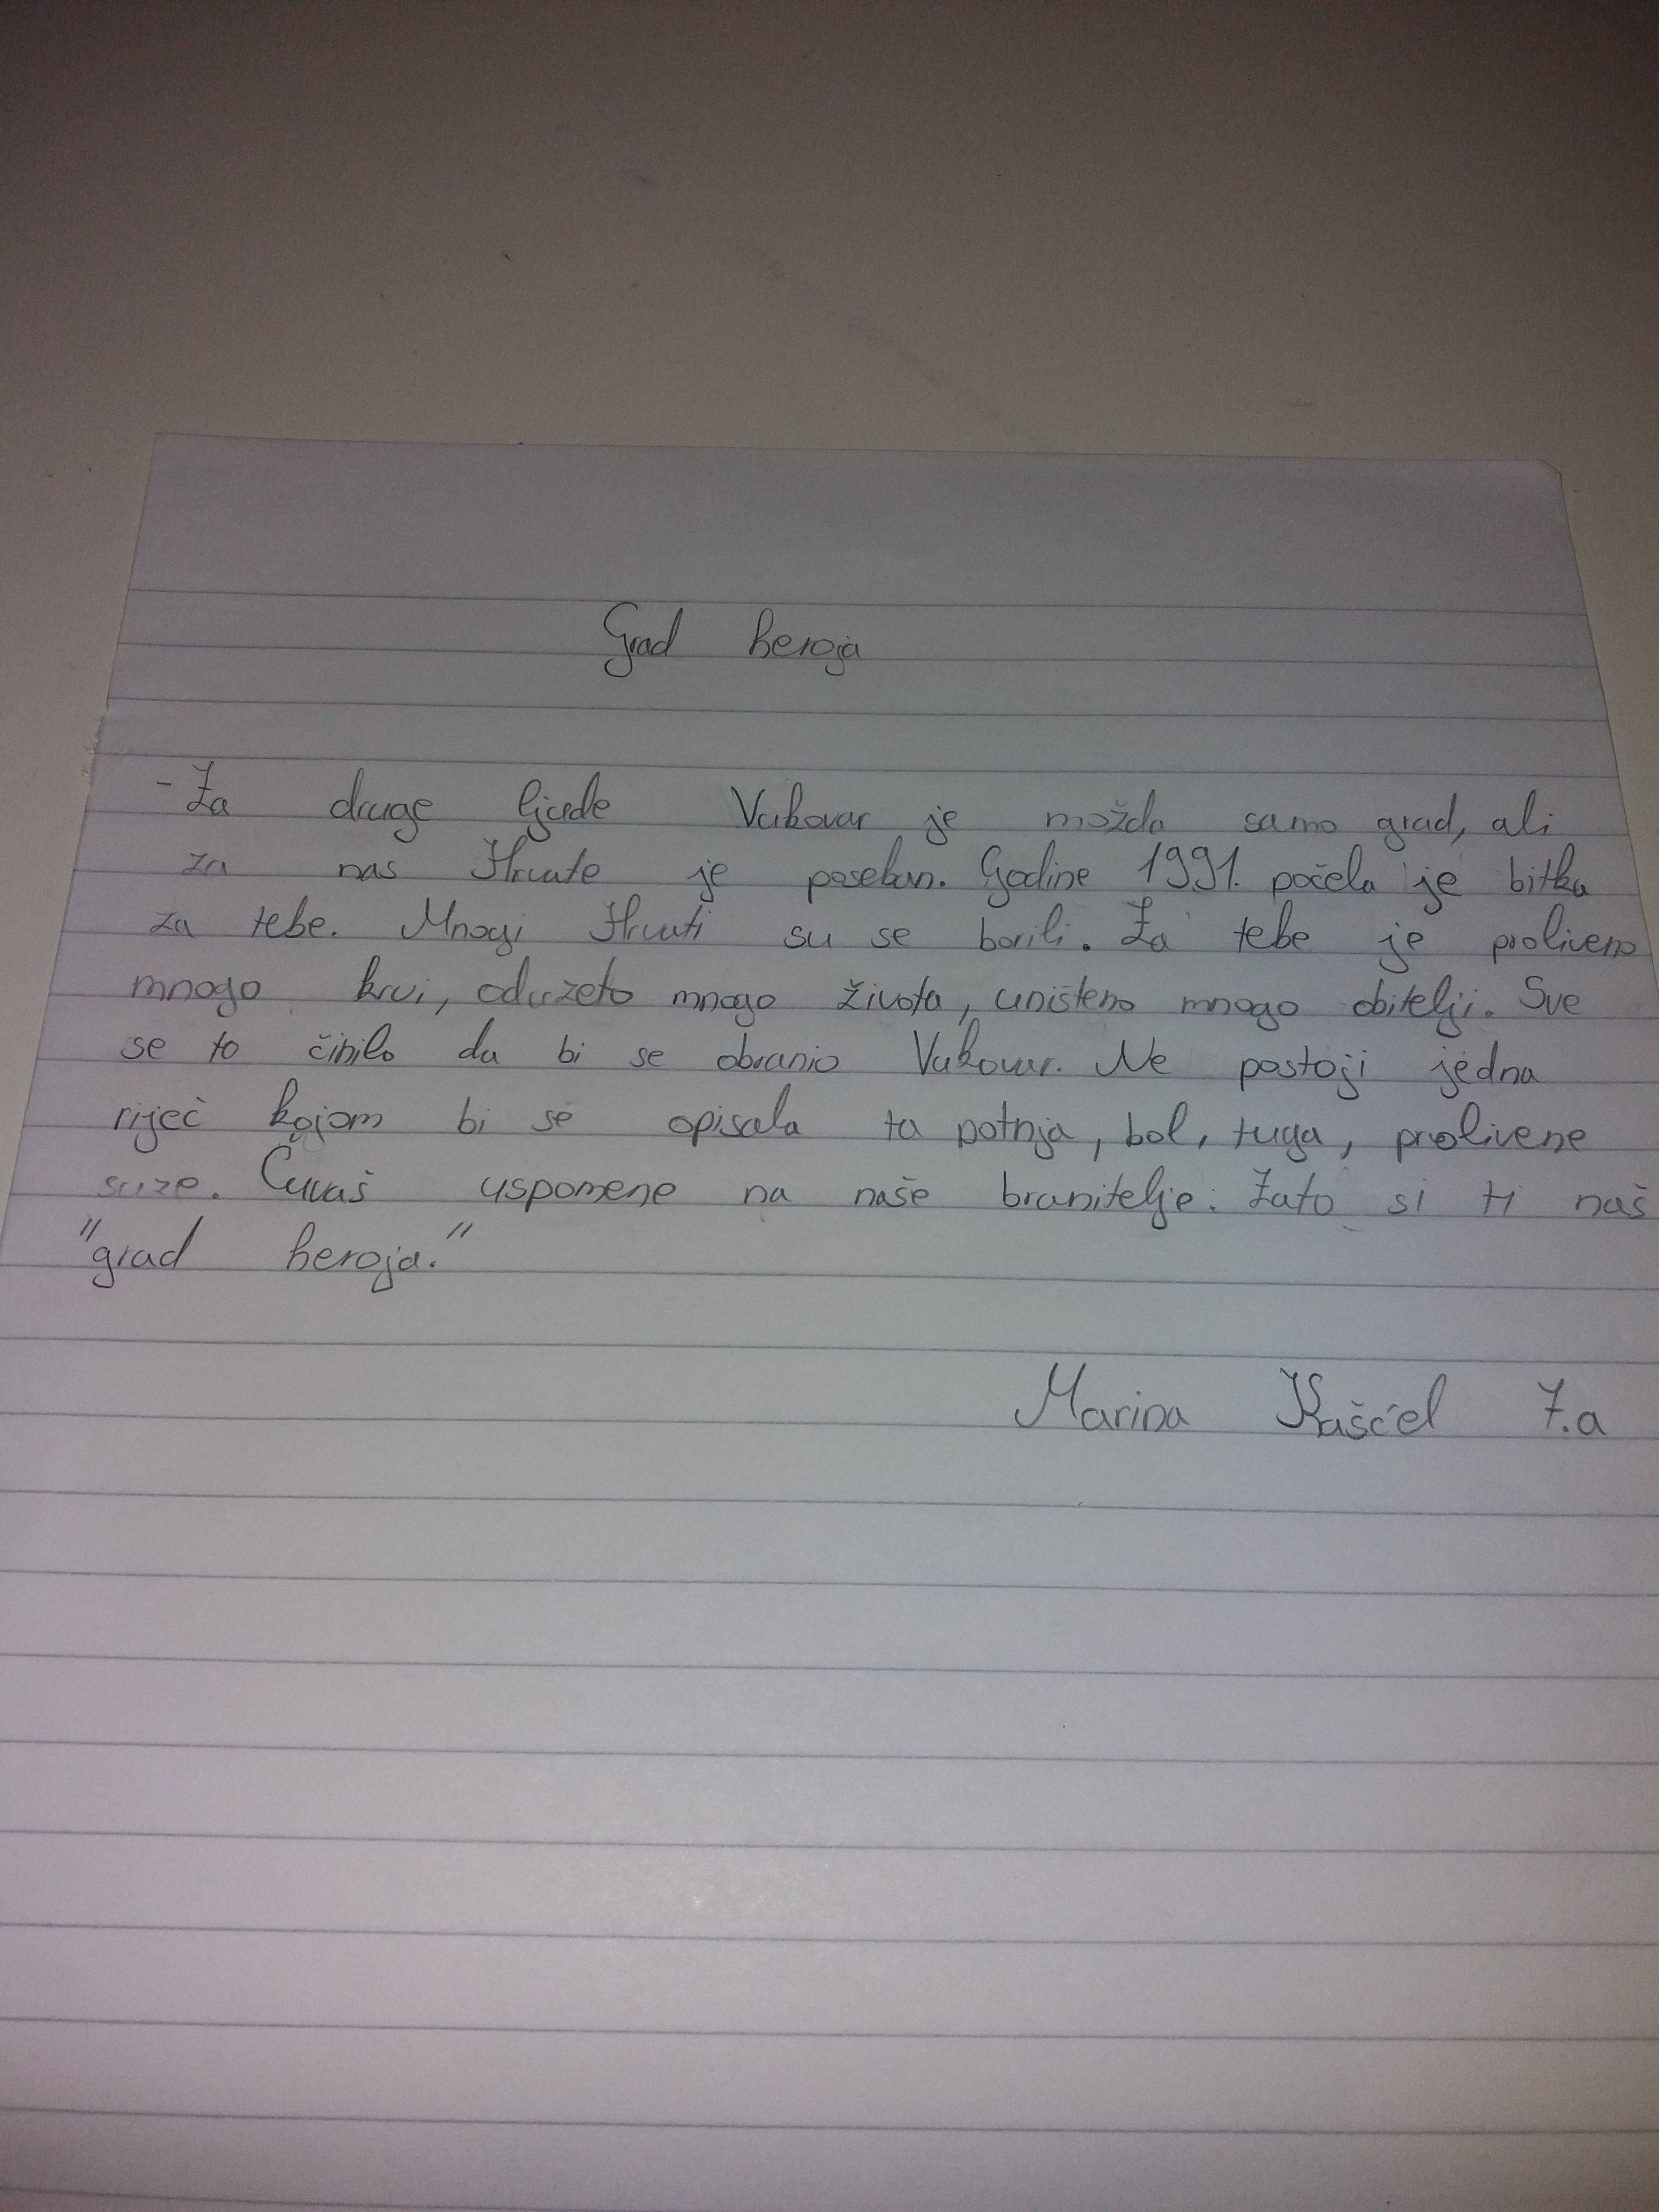 Grad heroja
-Za druge ljude Vukovar je možda samo grad, ali
za nas Hrvate je poseban. Godine 1991. počela je bitka
za tebe. Mnogi Hrvati su se borili. Za tebe je proliveno
mnogo krvi, oduzeto mnogo života, uništeno mnogo obitelji. Sve
se to činilo da bi se obranio Vukovar. Ne postoji jedna
riječ kojom bi se opisala ta patnja, bol, tuga, prolivene
suze. Čuvaš uspomene na naše branitelje. Zato si ti naš
"grad heroja."
Marina Kašćel 7.a